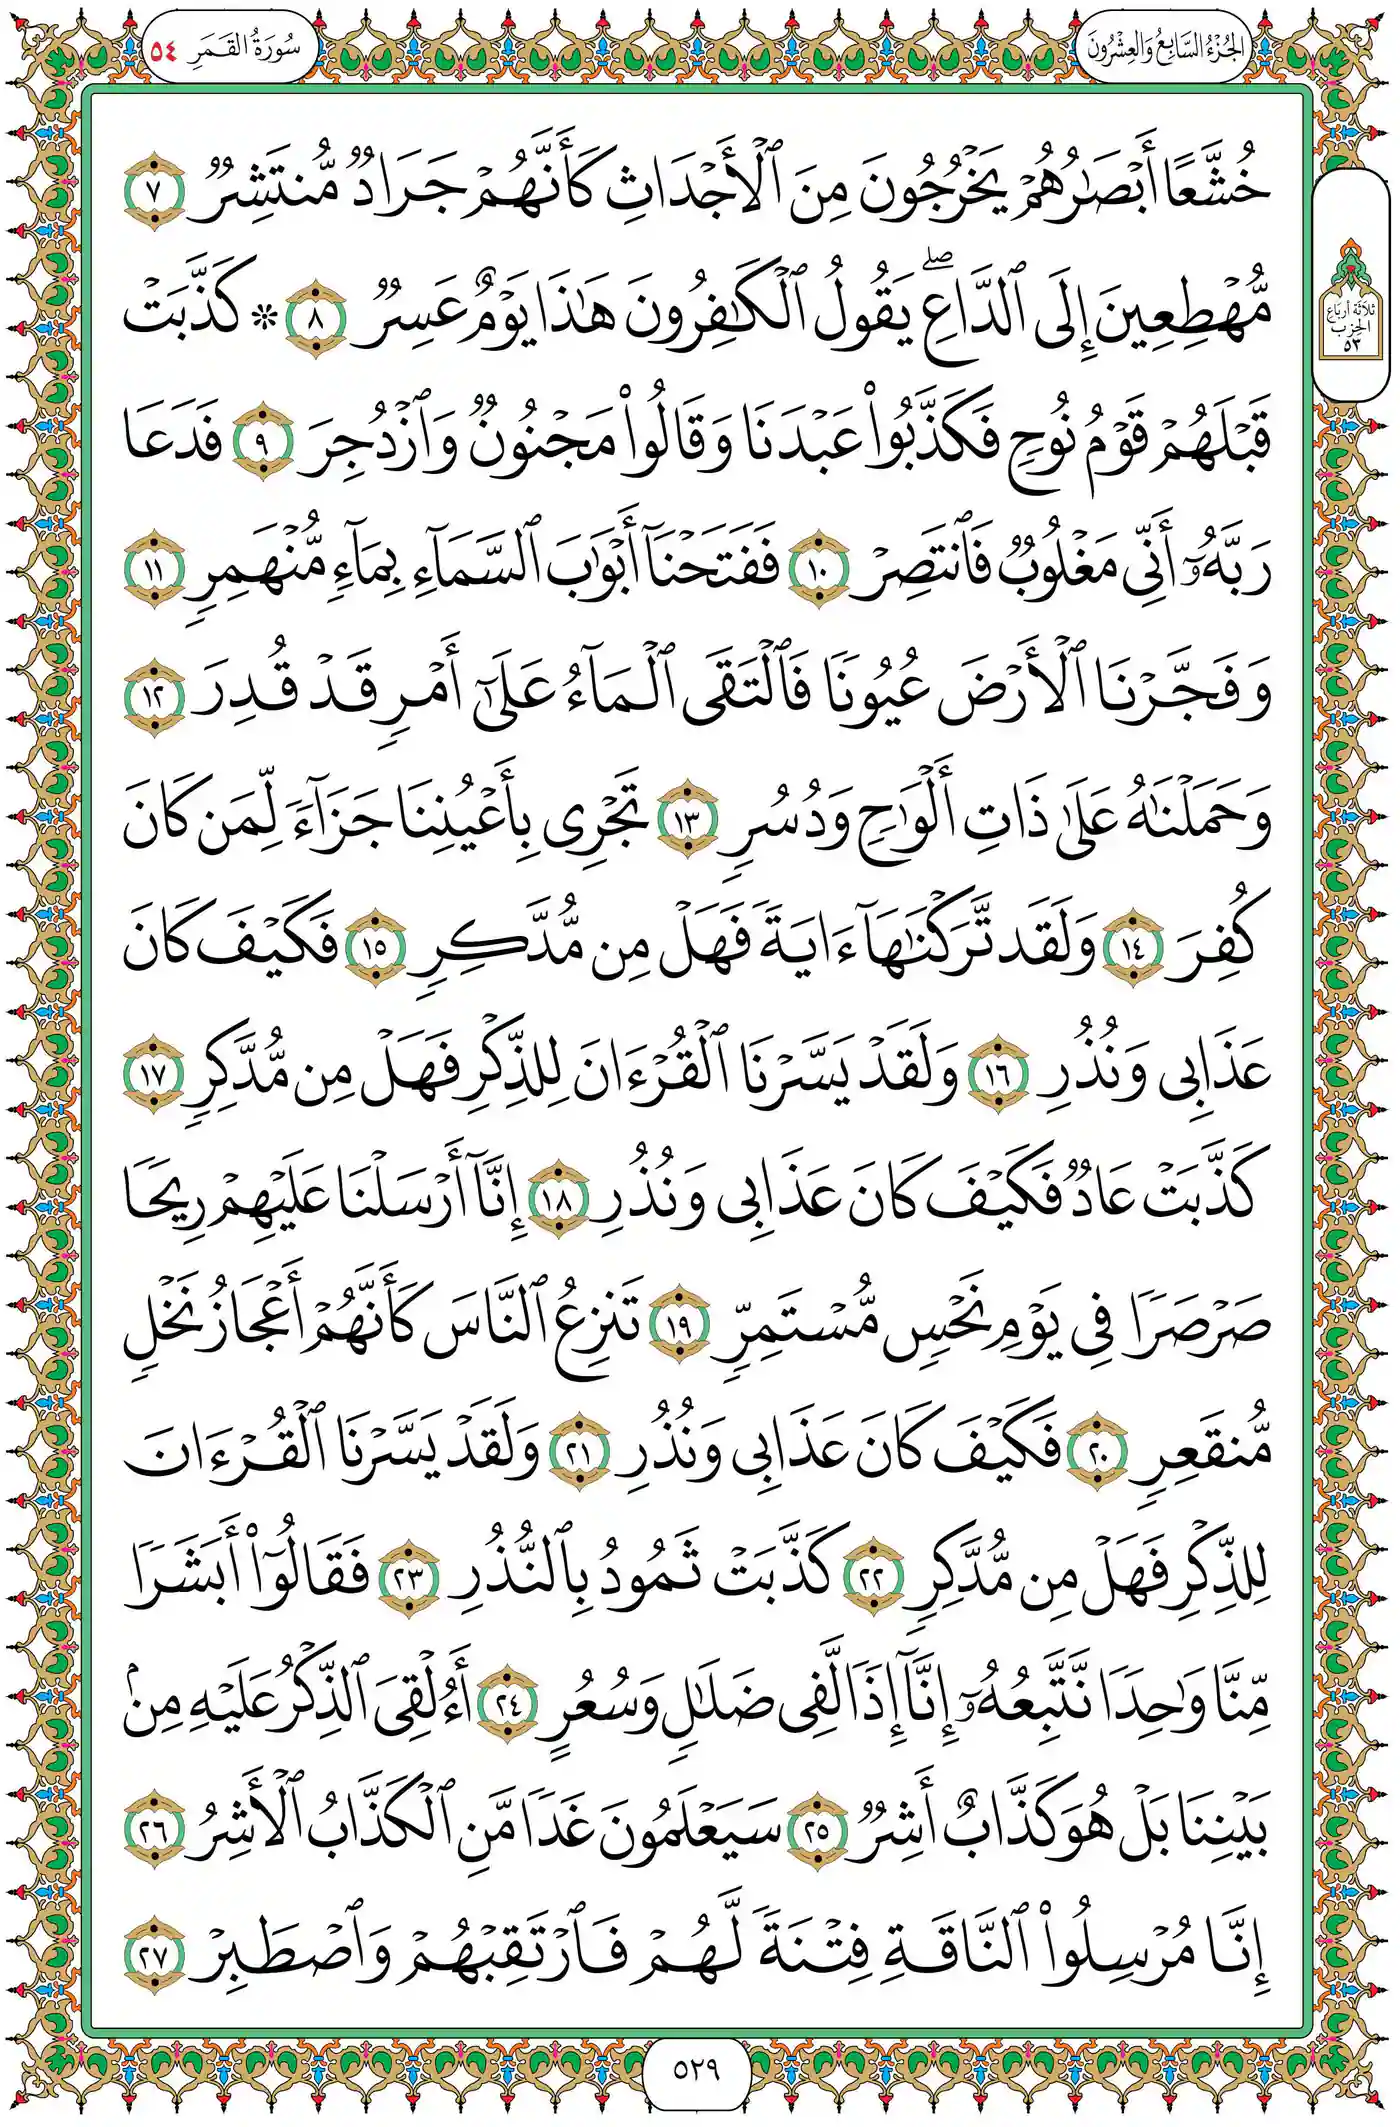 الجُزْءُ السَّابِعُ وَالعِشْرُونَ
سُورَةُ القَمَرِ ٥٤
خُشَّعًا أَبْصَٰرُهُمْ يَخْرُجُونَ مِنَ ٱلْأَجْدَاثِ كَأَنَّهُمْ جَرَادٌ مُّنتَشِرٌ ٧
مُّهْطِعِينَ إِلَى ٱلدَّاعِ ۖ يَقُولُ ٱلْكَٰفِرُونَ هَٰذَا يَوْمٌ عَسِرٌ ٨ * كَذَّبَتْ
قَبْلَهُمْ قَوْمُ نُوحٍ فَكَذَّبُوا۟ عَبْدَنَا وَقَالُوا۟ مَجْنُونٌ وَٱزْدُجِرَ ٩ فَدَعَا
رَبَّهُۥٓ أَنِّى مَغْلُوبٌ فَٱنتَصِرْ ١٠ فَفَتَحْنَآ أَبْوَٰبَ ٱلسَّمَآءِ بِمَآءٍ مُّنْهَمِرٍ ١١
وَفَجَّرْنَا ٱلْأَرْضَ عُيُونًا فَٱلْتَقَى ٱلْمَآءُ عَلَىٰٓ أَمْرٍ قَدْ قُدِرَ ١٢
وَحَمَلْنَٰهُ عَلَىٰ ذَاتِ أَلْوَٰحٍ وَدُسُرٍ ١٣ تَجْرِى بِأَعْيُنِنَا جَزَآءً لِّمَن كَانَ
كُفِرَ ١٤ وَلَقَد تَّرَكْنَٰهَآ ءَايَةً فَهَلْ مِن مُّدَّكِرٍ ١٥ فَكَيْفَ كَانَ
عَذَابِى وَنُذُرِ ١٦ وَلَقَدْ يَسَّرْنَا ٱلْقُرْءَانَ لِلذِّكْرِ فَهَلْ مِن مُّدَّكِرٍ ١٧
كَذَّبَتْ عَادٌ فَكَيْفَ كَانَ عَذَابِى وَنُذُرِ ١٨ إِنَّآ أَرْسَلْنَا عَلَيْهِمْ رِيحًا
صَرْصَرًا فِى يَوْمِ نَحْسٍ مُّسْتَمِرٍّ ١٩ تَنزِعُ ٱلنَّاسَ كَأَنَّهُمْ أَعْجَازُ نَخْلٍ
مُّنقَعِرٍ ٢٠ فَكَيْفَ كَانَ عَذَابِى وَنُذُرِ ٢١ وَلَقَدْ يَسَّرْنَا ٱلْقُرْءَانَ
لِلذِّكْرِ فَهَلْ مِن مُّدَّكِرٍ ٢٢ كَذَّبَتْ ثَمُودُ بِٱلنُّذُرِ ٢٣ فَقَالُوٓا۟ أَبَشَرًا
مِّنَّا وَٰحِدًا نَّتَّبِعُهُۥٓ إِنَّآ إِذًا لَّفِى ضَلَٰلٍ وَسُعُرٍ ٢٤ أَءُلْقِىَ ٱلذِّكْرُ عَلَيْهِ مِنۢ
بَيْنِنَا بَلْ هُوَ كَذَّابٌ أَشِرٌ ٢٥ سَيَعْلَمُونَ غَدًا مَّنِ ٱلْكَذَّابُ ٱلْأَشِرُ ٢٦
إِنَّا مُرْسِلُوا۟ ٱلنَّاقَةِ فِتْنَةً لَّهُمْ فَٱرْتَقِبْهُمْ وَٱصْطَبِرْ ٢٧
ثَلَاثَة أَربَاع
الحِزْبِ
٥٣
٥٢٩